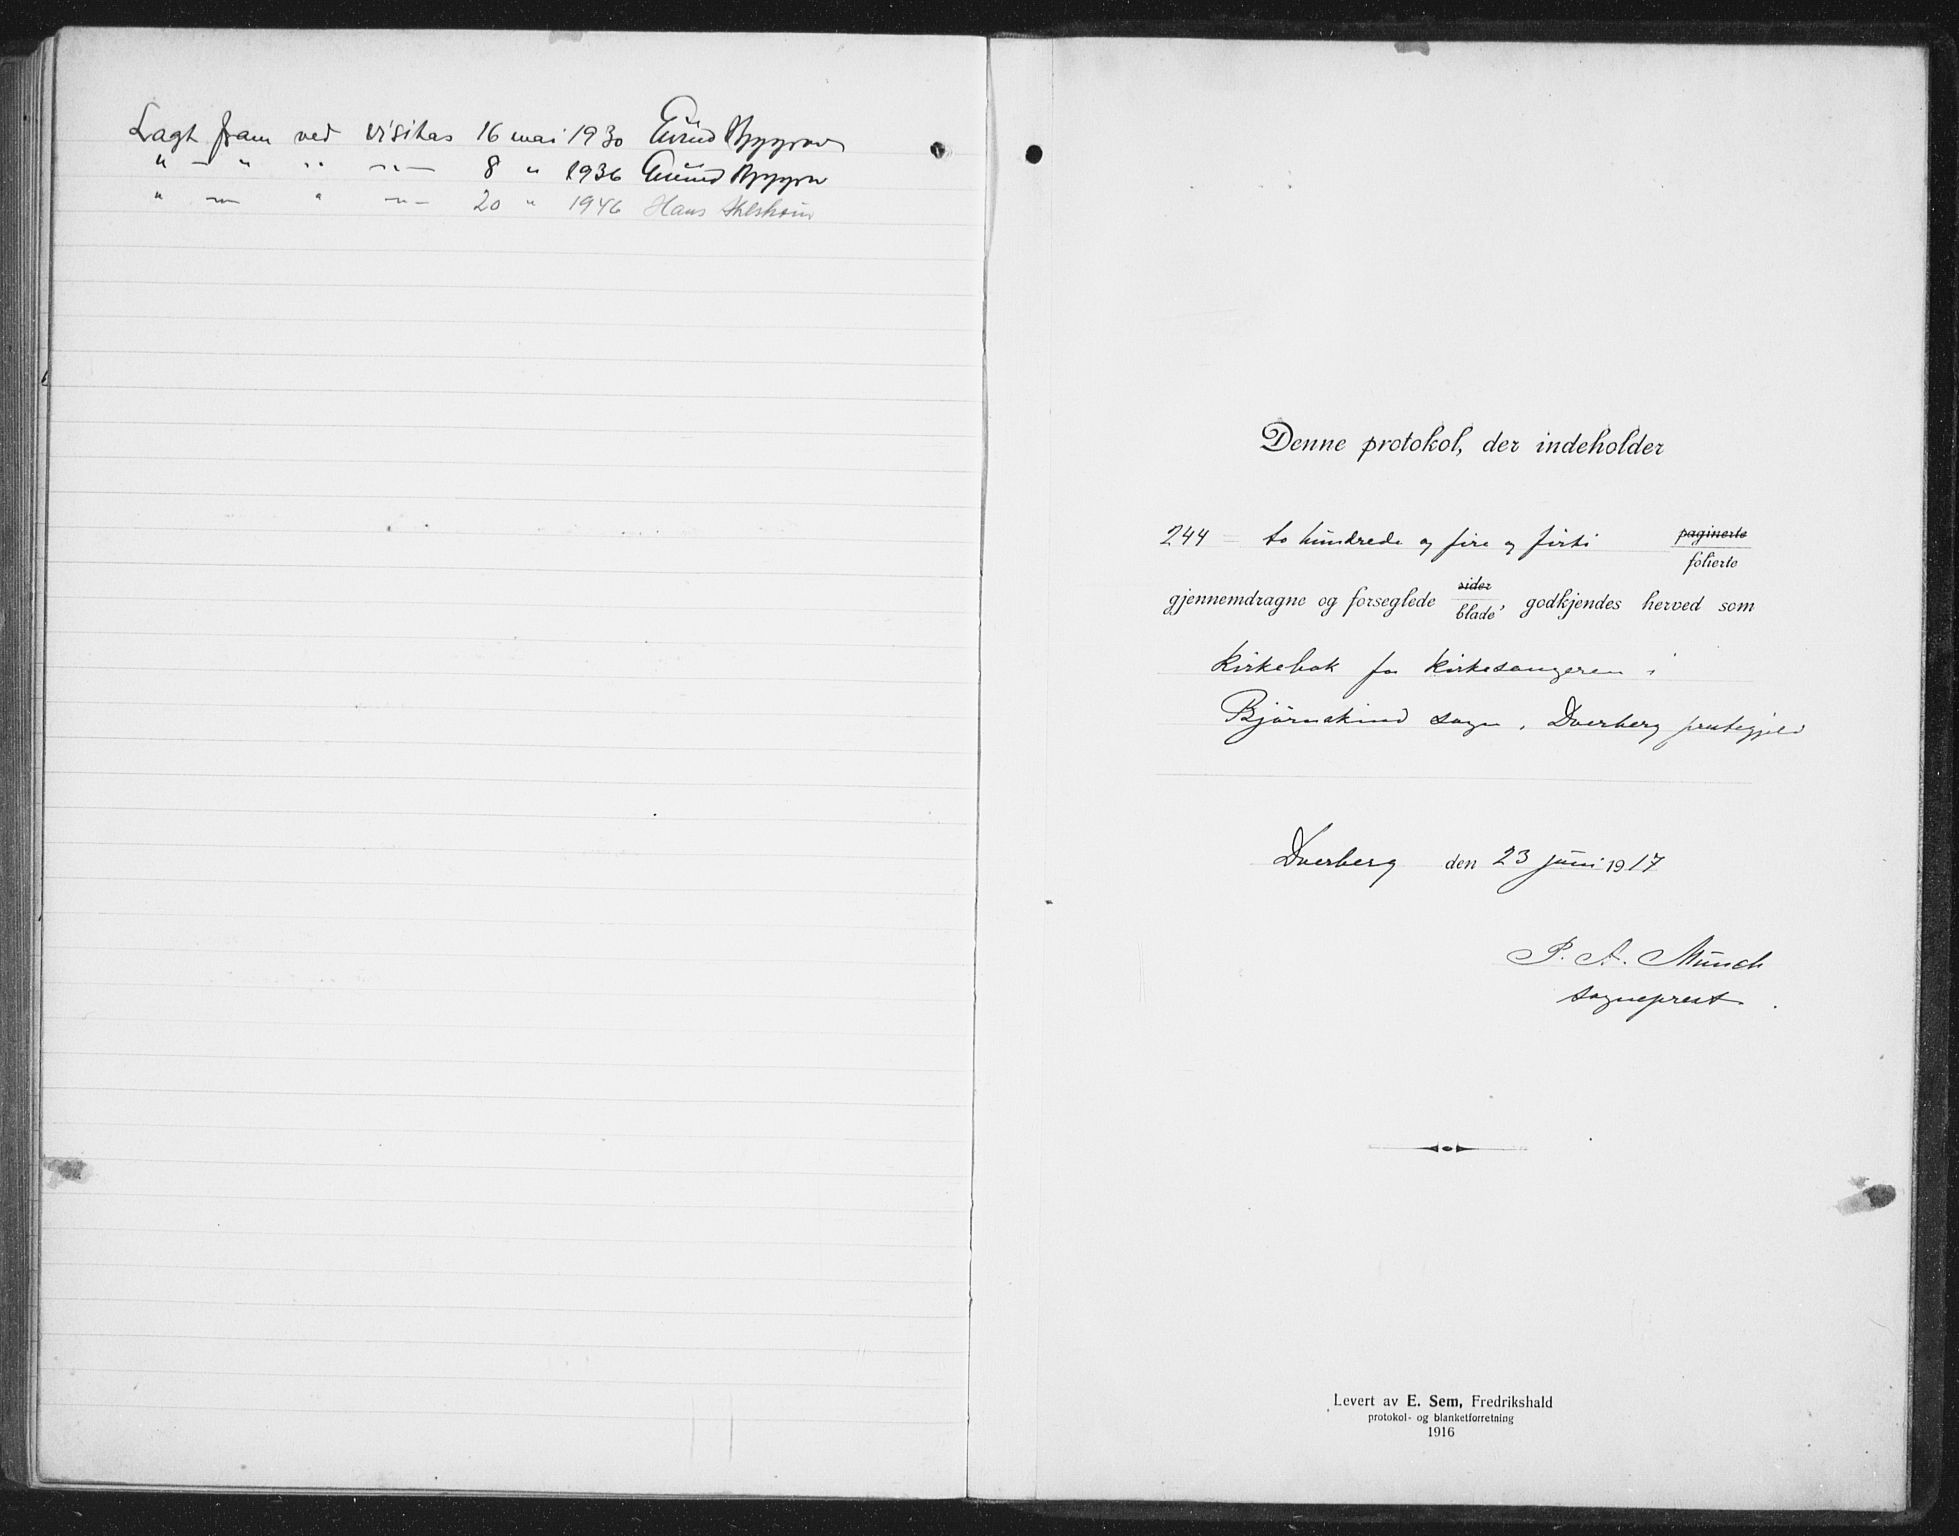 Lagt fram ved visitas 16 mai 1930 Eivind Berggrav
" — " " —"— 8 " 1936 Eivind Berggrav
" —"— " —"— 20 " 1946 Hans
Denne protokol, der indeholder
244 = to hundrede og fire og firti paginerte
folierte
gjennemdragne og forseglede sider
blade, godkjendes herved som
kirkebok for kirkesangeren i
Bjørnskind sogn, Dverberg prestegjeld
Dverberg den 23 juni 1917
P. A. Münch
sogneprest.
Levert av E. Sem, Fredrikshald
protokol- og blanketforretning
1916